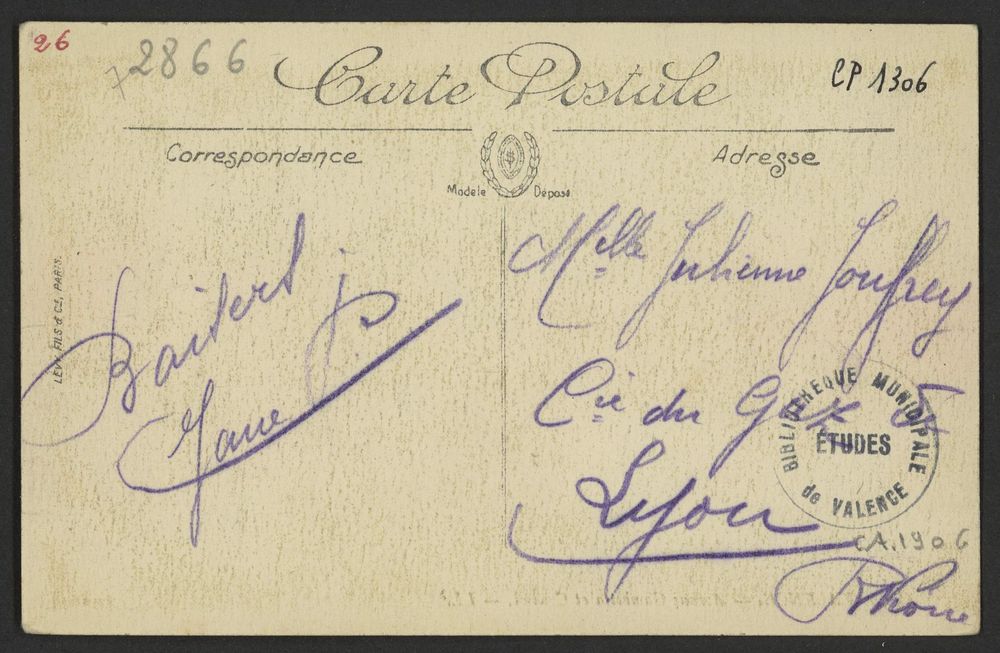 26
2866
CP 1306
Carte Postale
Correspondance
Adresse
Modèle Déposé
LEVY FILS & Cie, PARIS.
Baisers
Jane
Melle Julienne Jouffrey
Cie du Gaz
Lyon
Rhône
BIBLIOTHEQUE MUNICIPALE
ETUDES
de VALENCE
CA.1906